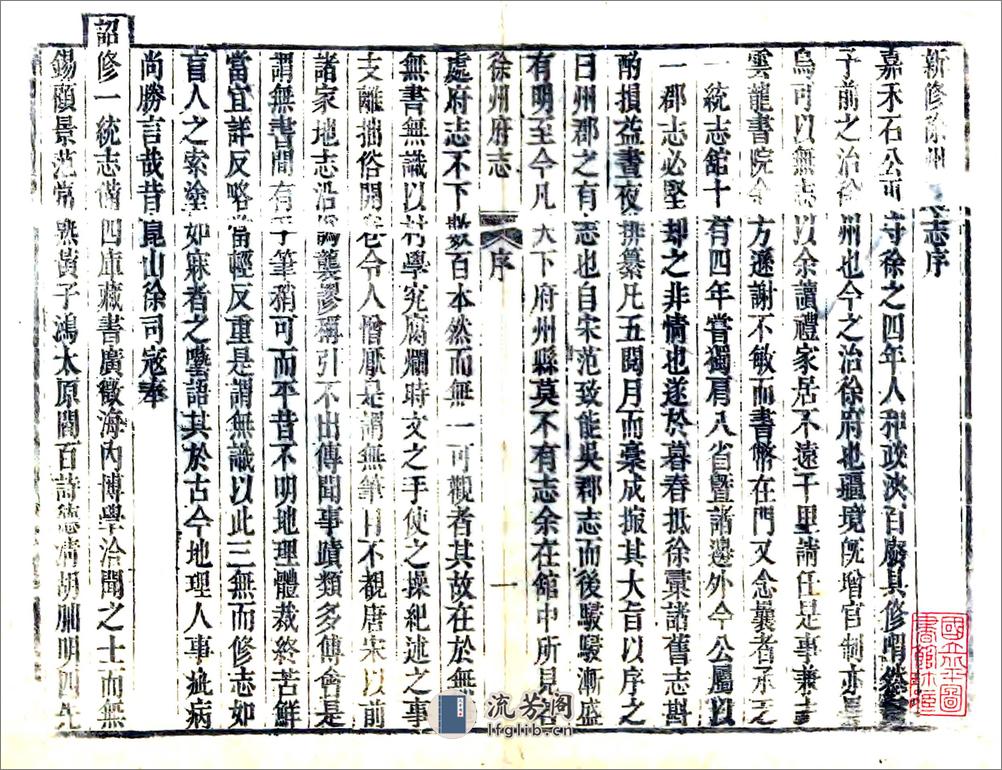 新修徐州志序
嘉禾石公司守徐之四年人和政浹百廢具修喟然
子前之治徐州也今之治徐府也疆境旣增官制亦
烏可以無志以余讀禮家居不遠千里諈任是事兼
雲龍書院余方遜謝不敏而書幣在門又念曩者承乏
一統志舘十有四年嘗獨肩八省暨諸邊外今公屬以
一郡志必堅却之非情也遂於暮春抵徐稾諸舊志斟
酌損益晝夜排纂凡五閱月而稾成㨗其大旨以序之
曰州郡之有志也自宋范致能吳郡志而後駸駸漸盛
有明至今凡天下府州縣莫不有志余在舘中所見
徐州府志
序
一
處府志不下數百本然而無一可觀者其故在於無
無書無識以村學究腐爛時文之手使之操紀述之事
支離拙俗開卷令人憎厭是謂無筆目不觀唐宋以前
諸家地志沿譌襲謬稱引不出傳聞事蹟類多傅會是
謂無書間有手筆稍可而平昔不明地理體裁終苦鮮
當宜詳反略當輕反重是謂無識以此三無而修志如
盲人之索塗如麻者之囈語其於古今地理人事疵病
尚勝言哉昔崑山徐司寇奉
詔修一統志備四庫藏書廣徵海內博學洽聞之士而無
錫顧景范常熟黃子鴻太原閻百詩德清胡朏明四先
流芳閣
lfglib.cn